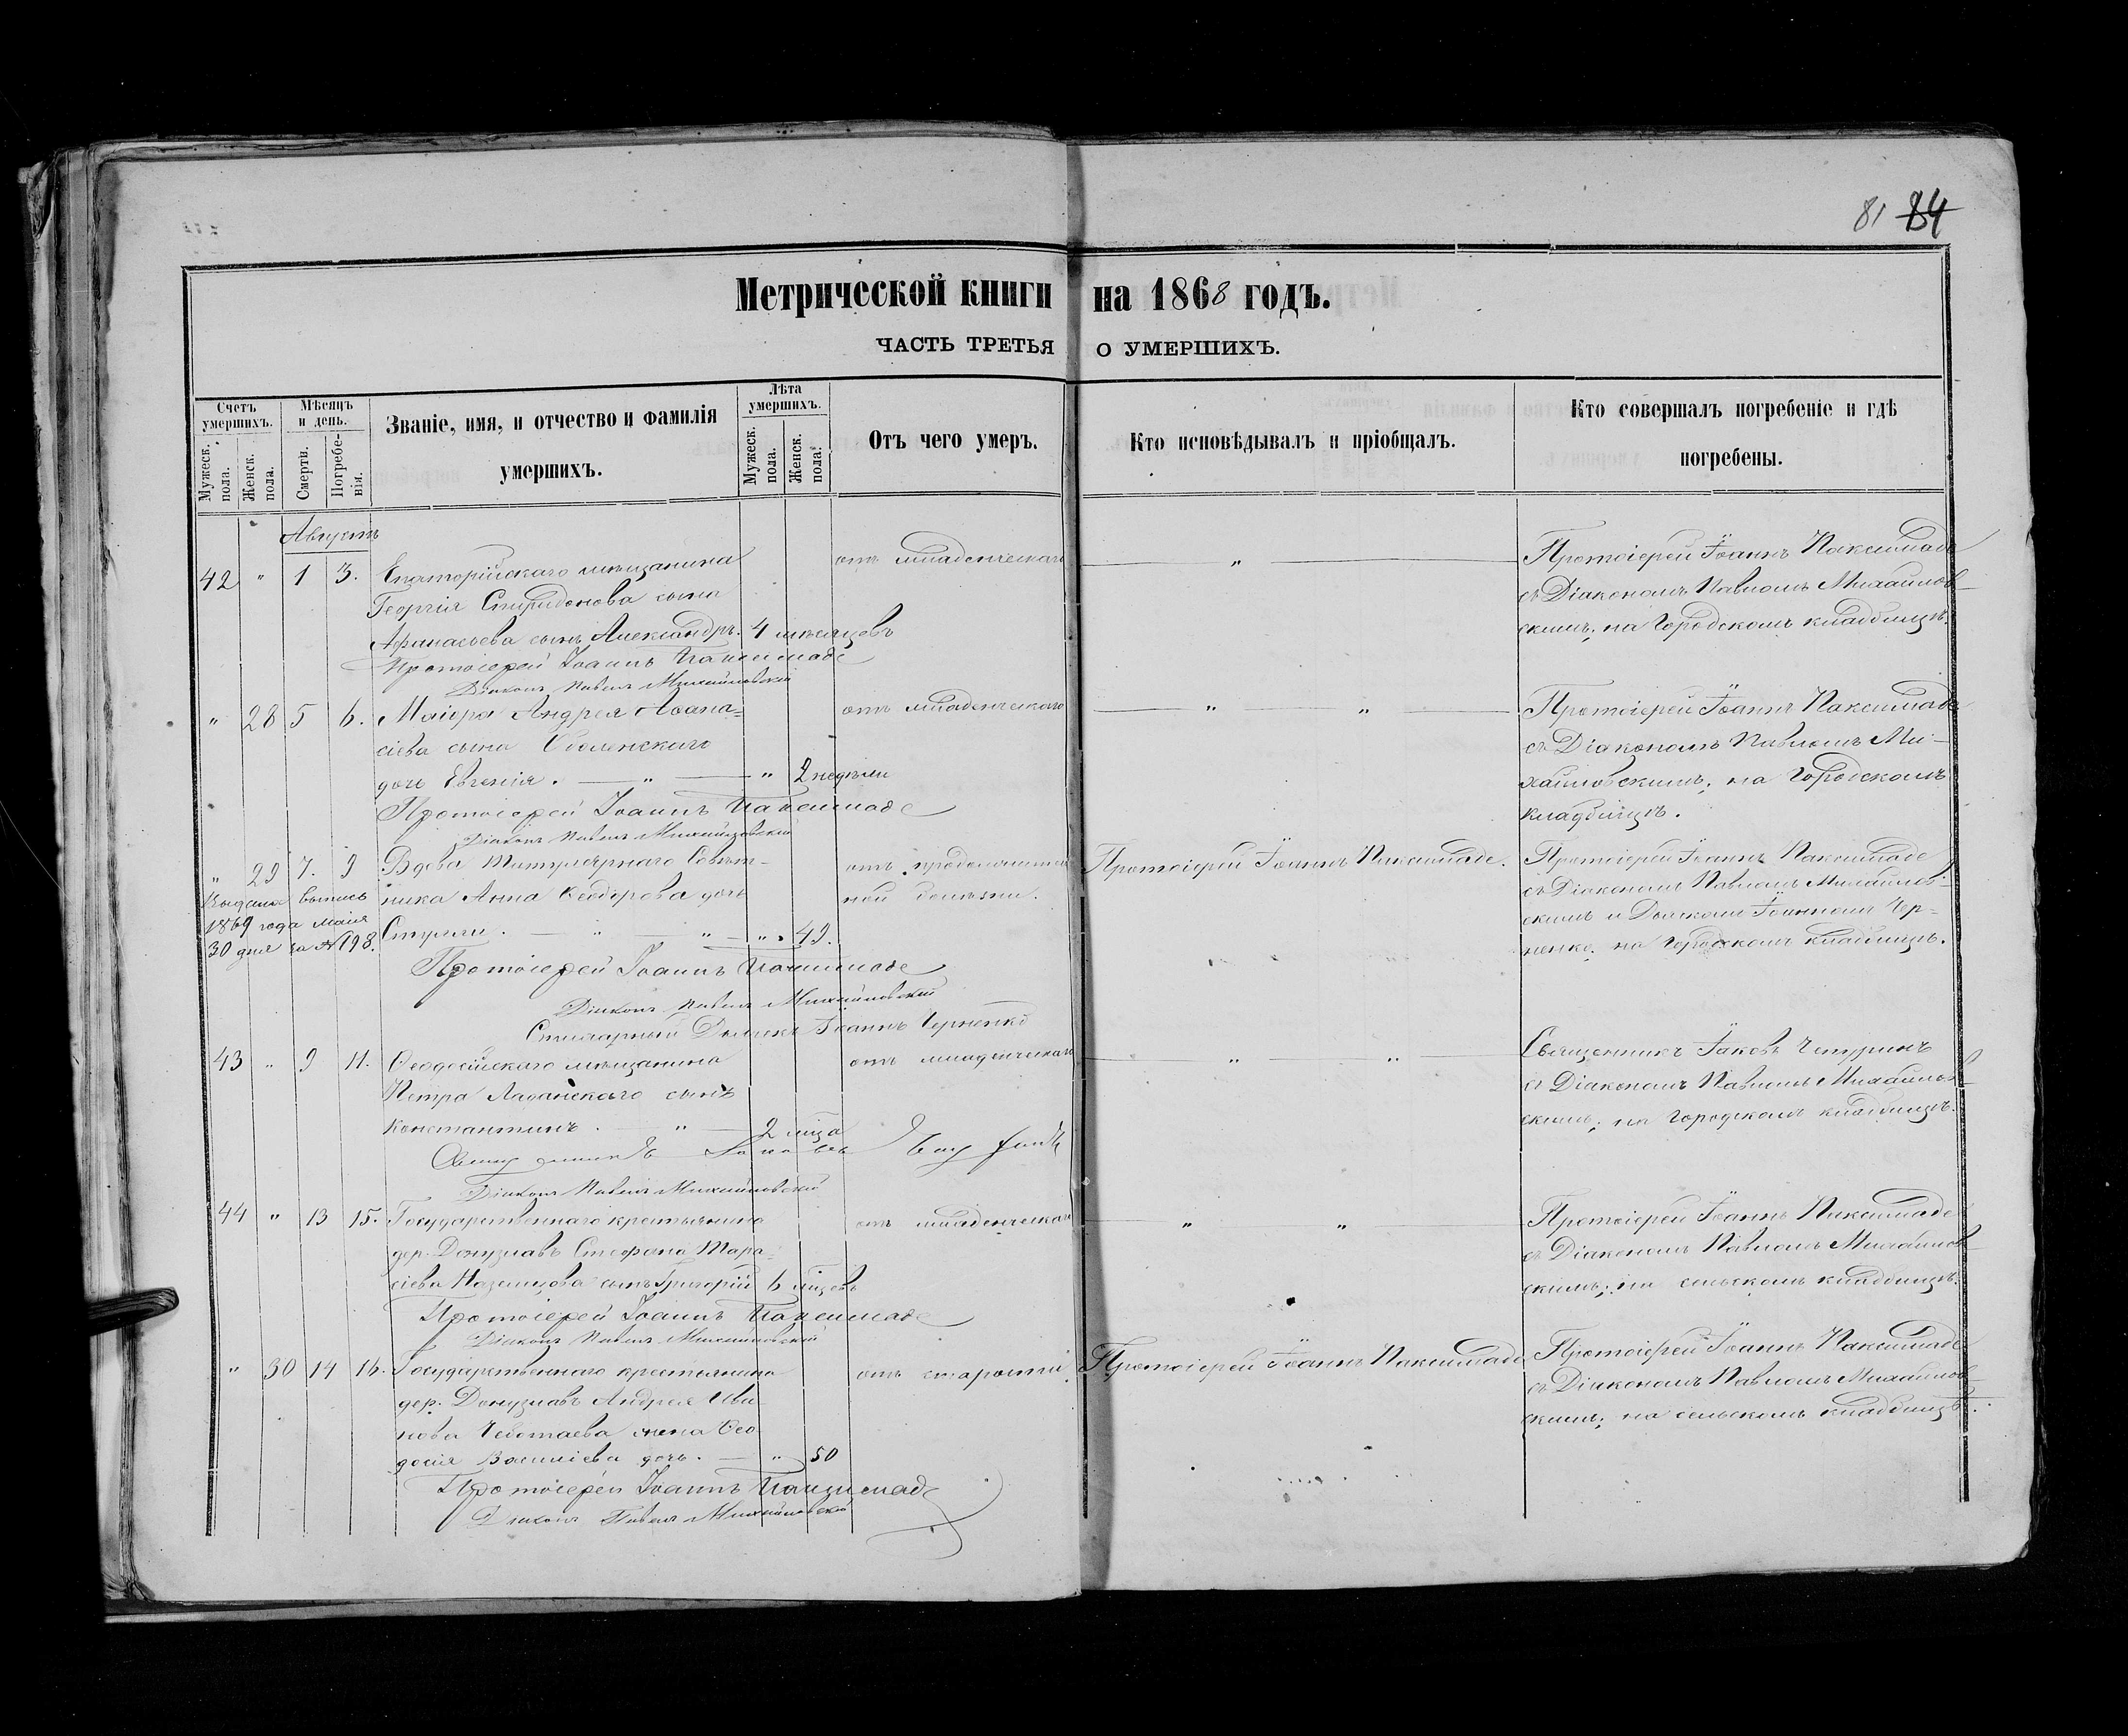 81 84
Метрической книги на 1868 годъ.
ЧАСТЬ ТРЕТЬЯ О УМЕРШИХЪ.
Счетъ умершихъ.
Мужеск. пола.
Женск. пола.
Мѣсяцъ и день.
Смерти.
Погребенія.
Званіе, имя, и отчество и фамилія умершихъ.
Лѣта умершихъ.
Мужеск. пола.
Женск. пола.
Отъ чего умеръ.
Кто исповѣдывалъ и пріобщалъ.
Кто совершалъ погребеніе и гдѣ погребены.
Августъ
42 " 1 3. Евпаторійскаго мѣщанина отъ младенческаго " Протоіерей Іоаннъ Паксимаде
Георгія Спиридонова сына съ Діакономъ Павломъ Михайлов-
Афанасьева сынъ Александръ. 4 мѣсяцовъ скимъ; на Городскомъ кладбищѣ.
Протоіерей Іоаннъ Паксимаде
Діаконъ Павелъ Михайловскій
" 28 5 6. Маіора Андрея Аѳана- отъ младенческаго " " Протоіерей Іоаннъ Паксимаде
сіева сына Оболенскаго съ Діакономъ Павломъ Ми-
дочь Евгенія. " " 2 недѣли хайловскимъ; на Городскомъ
Протоіерей Іоаннъ Паксимаде кладбищѣ.
Діаконъ Павелъ Михайловскій
" 29 7. 9 Вдова Титулярнаго Совѣт- отъ продолжитель Протоіерей Іоаннъ Паксимаде. Протоіерей Іоаннъ Паксимаде
Выдана выпись ника Анна Ѳеодорова дочь ной болѣзни. съ Діакономъ Павломъ Михайлов-
1869 года маія скимъ и Дьячкомъ Іоанномъ Чер-
30 дня за № 198. " " " 49. ненко; на Городскомъ кладбищѣ.
Протоіерей Іоаннъ Паксимаде
Діаконъ Павелъ Михайловскій
Дьячекъ Іоаннъ Черненко
43 " 9 11. Ѳеодосійскаго мѣщанина отъ младенческаго " " Священникъ Іаковъ Чепуринъ
Петра сынъ съ Діакономъ Павломъ Михайлов-
Константинъ. " 2 мѣсца скимъ; на Городскомъ кладбищѣ.
Священникъ Іаковъ
Діаконъ Павелъ Михайловскій
44 " 13 15. Государственнаго крестьянина отъ младенческаго " " Протоіерей Іоаннъ Паксимаде
дер. Донузлавъ Стефана Тара- съ Діакономъ Павломъ Михайлов-
сіева сынъ Григорій 6 мѣцевъ скимъ; на сельскомъ кладбищѣ.
Протоіерей Іоаннъ Паксимаде
Діаконъ Павелъ Михайловскій
" 30 14 16. Государственнаго крестьянина отъ старости. Протоіерей Іоаннъ Паксимаде Протоіерей Іоаннъ Паксимаде
дер. Донузлавъ Андрея Ива съ Діакономъ Павломъ Михайлов-
нова Чеботаева жена Ѳео скимъ; на сельскомъ кладбищѣ.
досія Василіева дочь. " 50
Протоіерей Іоаннъ Паксимаде
Діаконъ Павелъ Михайловскій